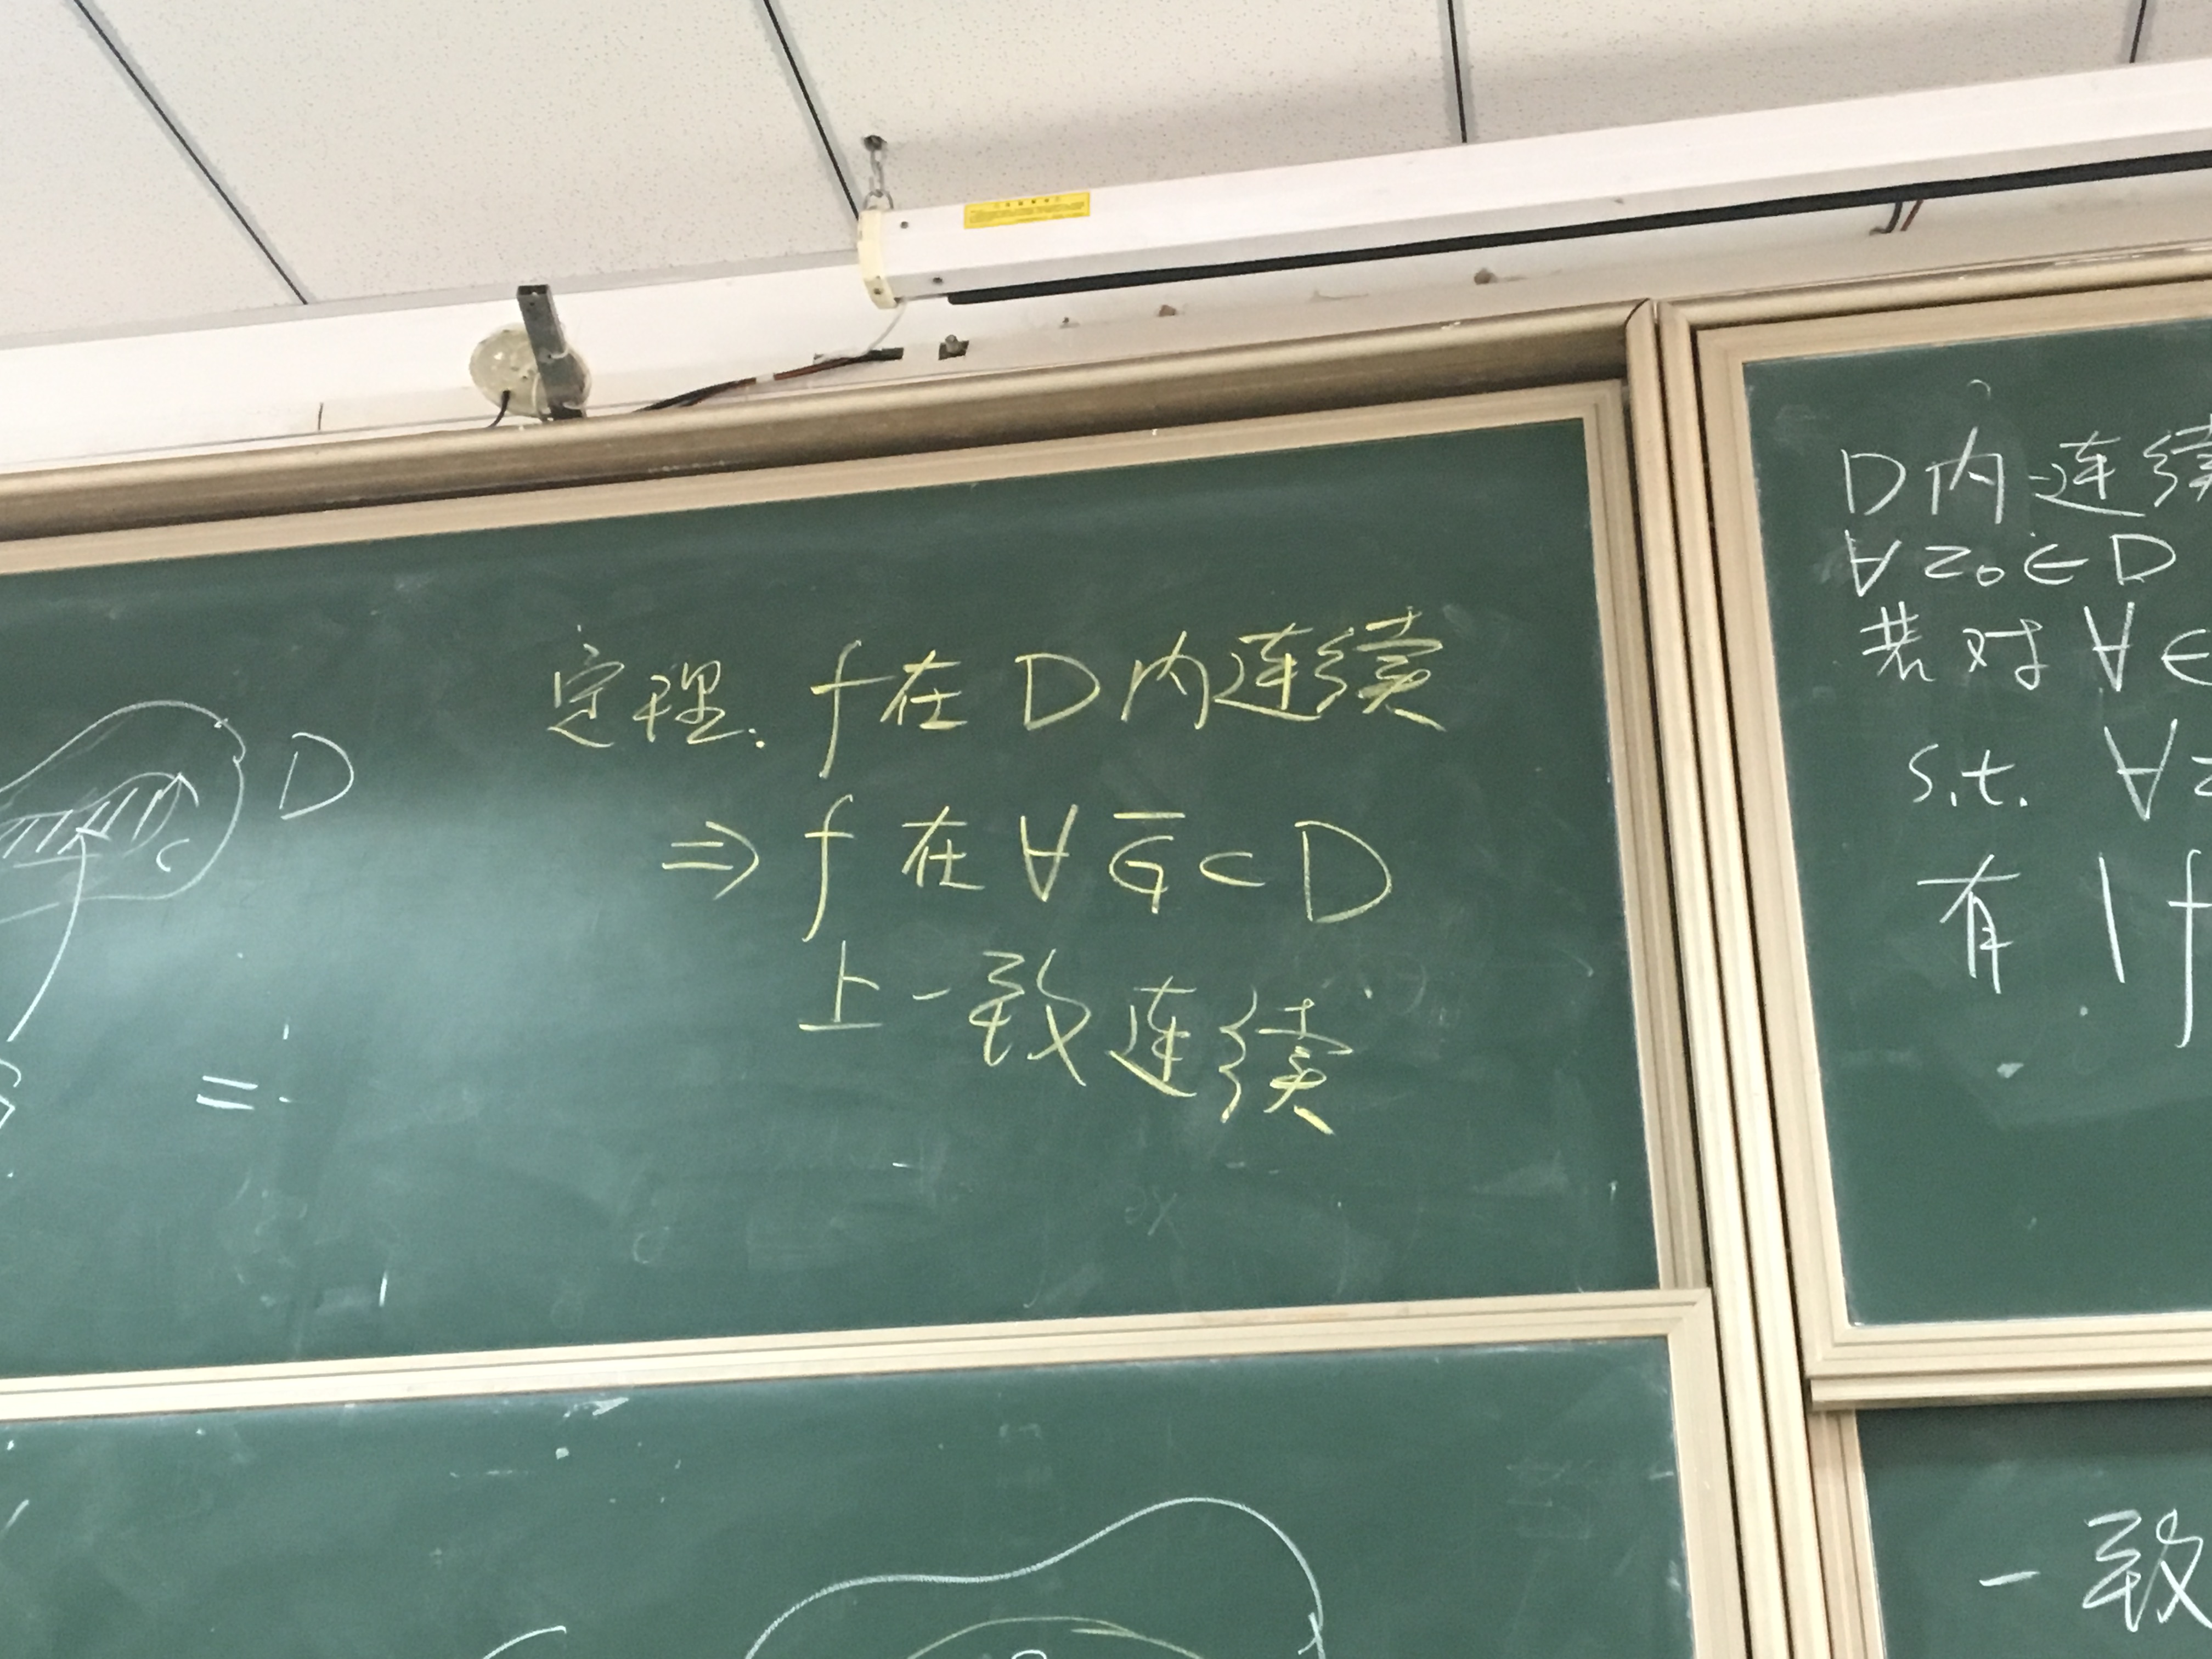 定理: f在D内连续
⇒ f在∀G̅⊂D
上一致连续
D
=
D内连续
∀z₀∈D
若对∀∈
s.t. ∀z
有 |f
一致